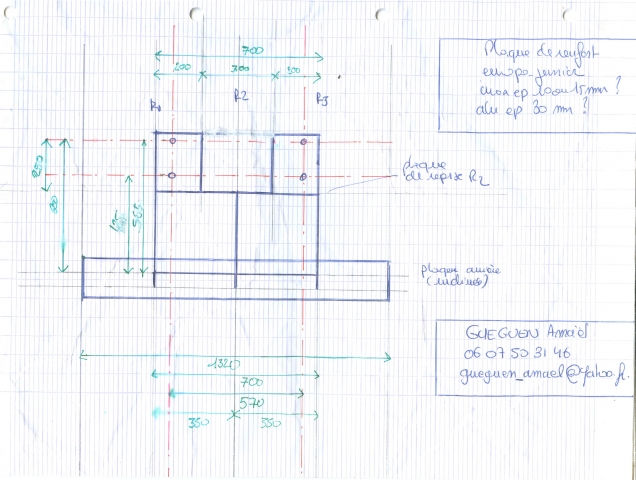 700
200 300 200
R1
R2
R3
Plaque de renfort
europe junior
inox ep 10 ou 15 mm ?
alu ep 30 mm ?
plaque
de reprise R2
250
565
plaque
GUEGUEN Amaël
06 07 50 31 46
gueguen_amael@yahoo.fr
1320
700
570
350 350